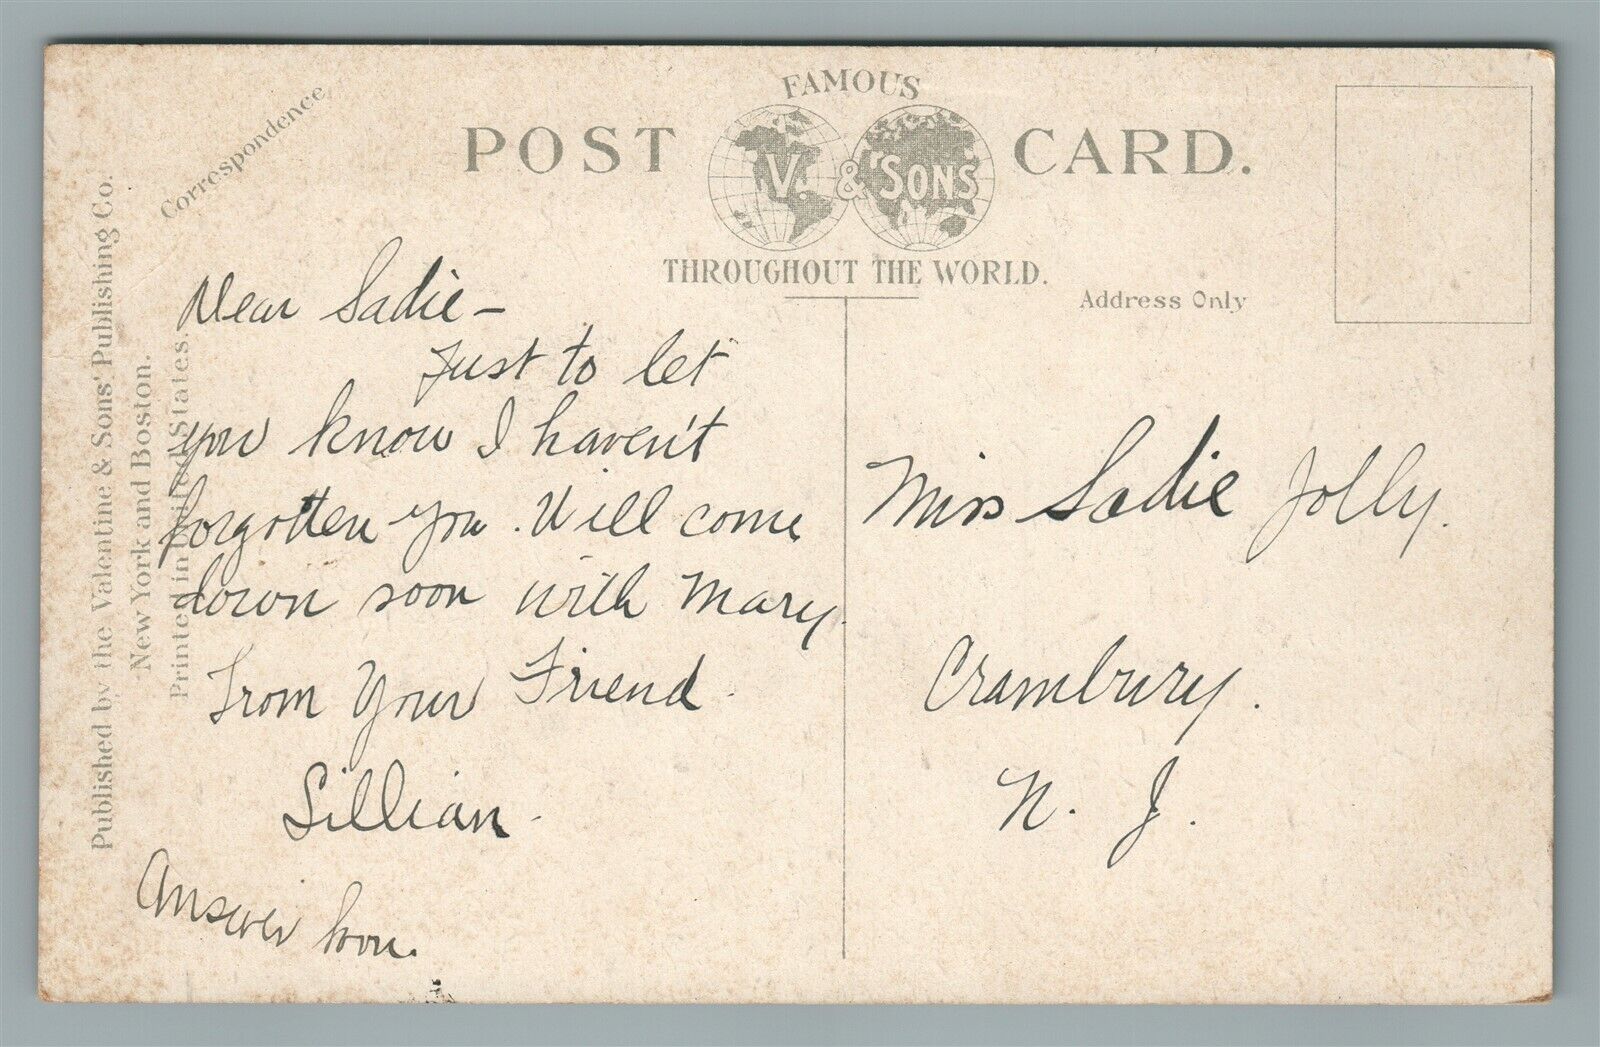 FAMOUS
POST CARD.
V. & SONS
THROUGHOUT THE WORLD.
Correspondence
Address Only
Published by the Valentine & Sons' Publishing Co.
New York and Boston.
Printed in United States.
Dear Sadie –
Just to let
you know I haven't
forgotten you. Will come
down soon with Mary.
From Your Friend.
Lillian.
Answer soon.
Miss Sadie Jolly.
Cranbury.
N. J.